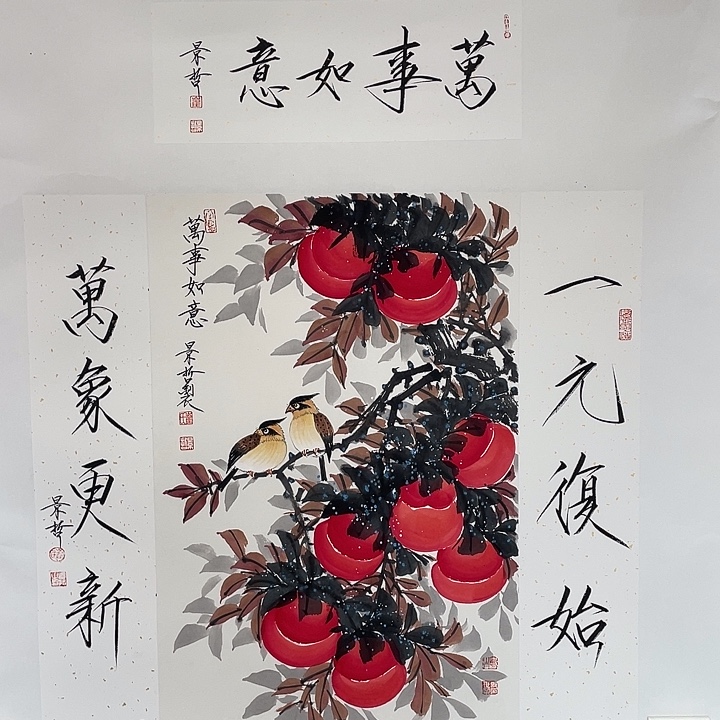 萬事如意
景哲
一元復始
萬象更新
景哲
萬事如意
景哲製